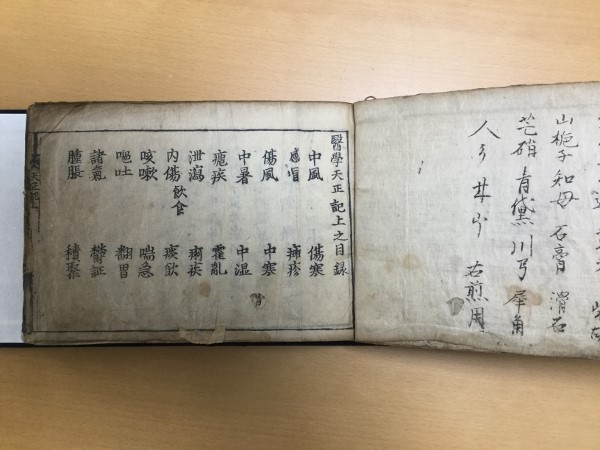 山梔子 知母 石膏 滑石
芒硝 青黛 川弓 犀角
人彡 甘 右煎用
醫學天正記上之目録
中風 傷寒
感冒 疹
傷風 中寒
中暑 中湿
瘧疾 霍亂
泄瀉 痢疾
内傷飲食 痰飲
咳嗽 喘急
嘔吐 翻胃
諸氣 鬱証
腫脹 積聚
天正記上